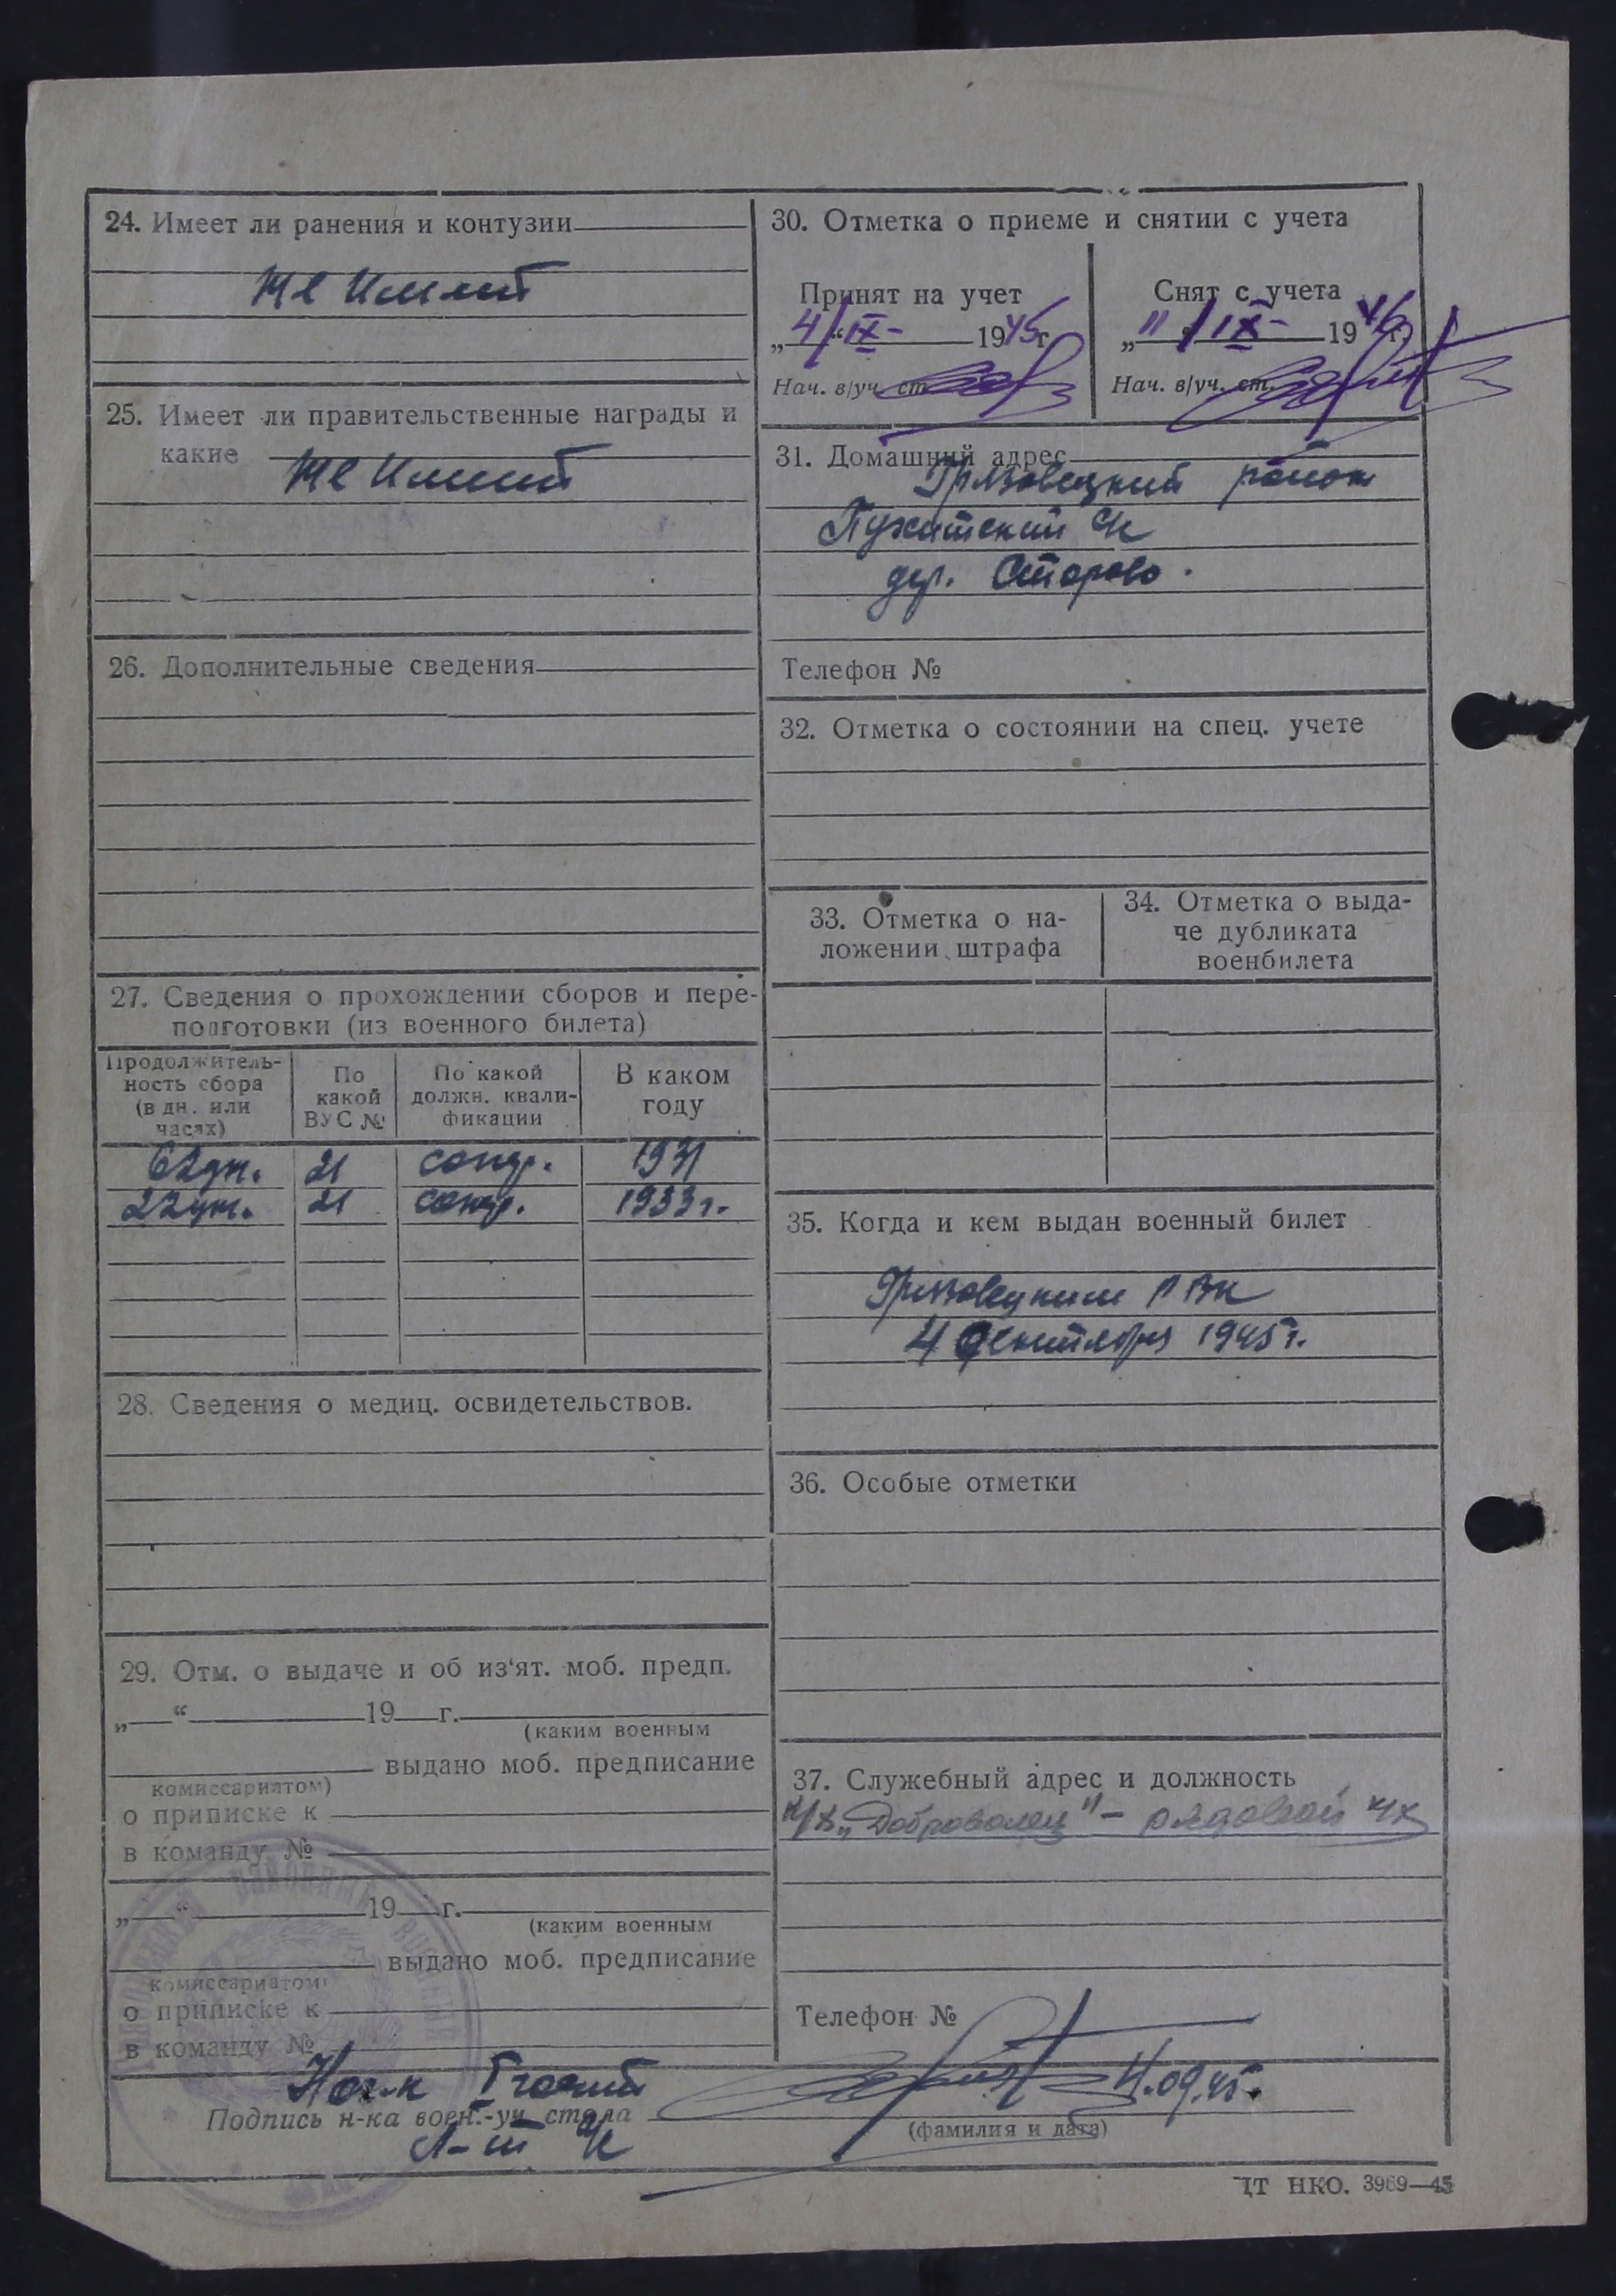 24. Имеет ли ранения и контузии
Не имеет
25. Имеет ли правительственные награды и
какие
Не имеет
26. Дополнительные сведения
27. Сведения о прохождении сборов и пере-
подготовки (из военного билета)
Продолжитель-
ность сбора
(в дн. или
часах)
По
какой
ВУС №
По какой
должн. квали-
фикации
В каком
году
62 дн. 21 1931
22 дн. 21 1933 г.
28. Сведения о медиц. освидетельствов.
29. Отм. о выдаче и об из‘ят. моб. предп.
„ “ 19 г.
(каким военным
выдано моб. предписание
комиссариатом)
о приписке к
в команду №
„ “ 19 г.
(каким военным
выдано моб. предписание
комиссариатом)
о приписке к
в команду №
30. Отметка о приеме и снятии с учета
Принят на учет
„4/“ IX- 1945 г.
Нач. в/уч. ст.
Снят с учета
„11/“ IX- 1946 г.
Нач. в/уч. ст.
31. Домашний адрес
Грязовецкий район
с/с
дер. Старово.
Телефон №
32. Отметка о состоянии на спец. учете
33. Отметка о на-
ложении штрафа
34. Отметка о выда-
че дубликата
военбилета
35. Когда и кем выдан военный билет
Грязовецким РВК
4 сентября 1945 г.
36. Особые отметки
37. Служебный адрес и должность
к/х „Доброволец" – рядовой к/х
Телефон №
Нач-к I части
Подпись н-ка воен.-уч. стола
л-т
09.45.
(фамилия и дата)
ЦТ НКО. 3969—45